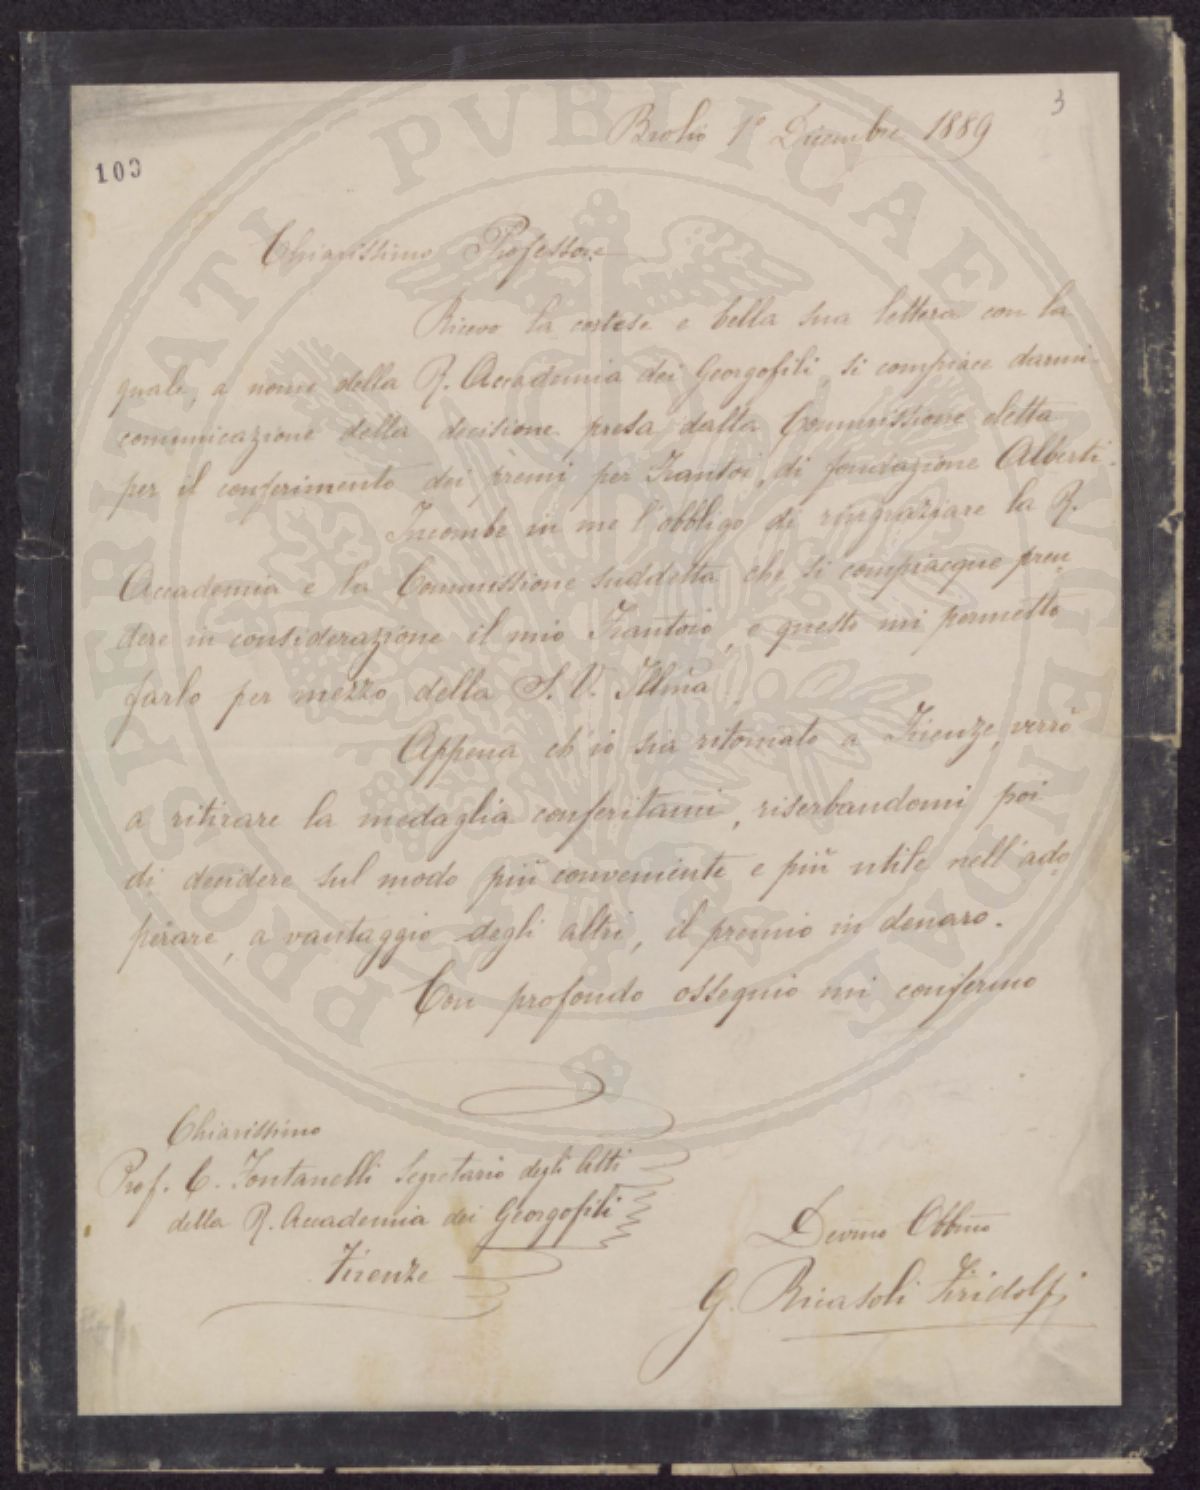 3
Brolio 1º Dicembre 1889
103
Chiarissimo Professore
Ricevo la cortese e bella sua lettera con la
quale, a nome della R. Accademia dei Georgofili, si compiace darmi
comunicazione della decisione presa dalla Commissione eletta
per il conferimento dei premi per Frantoi, di fondazione Alberti.
Incombe in me l'obbligo di ringraziare la R.
Accademia e la Commissione suddetta che si compiacque pren
dere in considerazione il mio Frantoio, e questo mi permetto
farlo per mezzo della S. V. Illma.
Appena ch'io sia ritornato a Firenze, verrò
a ritirare la medaglia conferitami, riserbandomi poi
di decidere sul modo più conveniente e più utile nell'ado
perare, a vantaggio degli altri, il premio in denaro.
Con profondo ossequio mi confermo
Chiarissimo
Prof. C. Fontanelli Segretario degli Atti
della R. Accademia dei Georgofili
Firenze
Devmo Obbmo
G. Ricasoli Firidolfi
PROSPERITATI PVBLICAE AVGENDAE